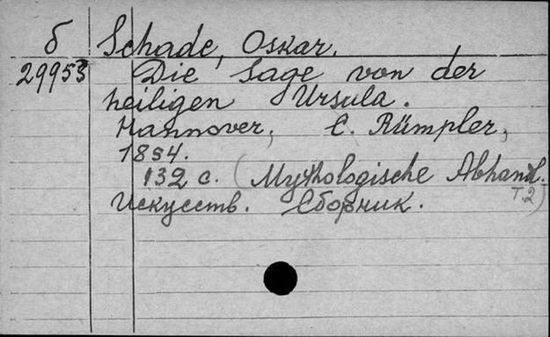 б Schade, Oskar.
29953 Die Sage von der
heiligen Ursula.
Hannover, C. Rümpler,
1854.
132 с. (Mythologische Abhandl.
Т.2)
Искусств. Сборник.